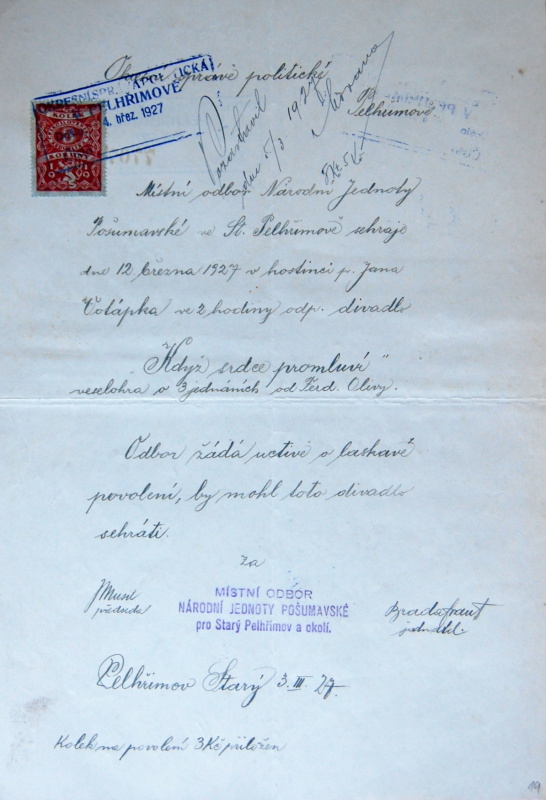 OKRESNÍ SPR. POLITICKÁ
PELHŘIMOVĚ
4. břez. 1927
správě politické
Pelhřimově
1927
5/3
KORUNY
Místní odbor Národní Jednoty
Pošumavské ve St. Pelhřimově sehraje
dne 12 března 1927 v hostinci p. Jana
Votápka ve 2 hodiny odp. divadlo
„Když srdce promluví"
veselohra o 3 jednáních od Ferd. Olivy.
Odbor žádá uctivě o laskavé
povolení, by mohl toto divadlo
sehráti.
Za
JMusil
předseda
MÍSTNÍ ODBOR
NÁRODNÍ JEDNOTY POŠUMAVSKÉ
pro Starý Pelhřimov a okolí.
jednatel
Pelhřimov Starý 3. III. 27.
Kolek na povolení 3 Kč přiložen
19